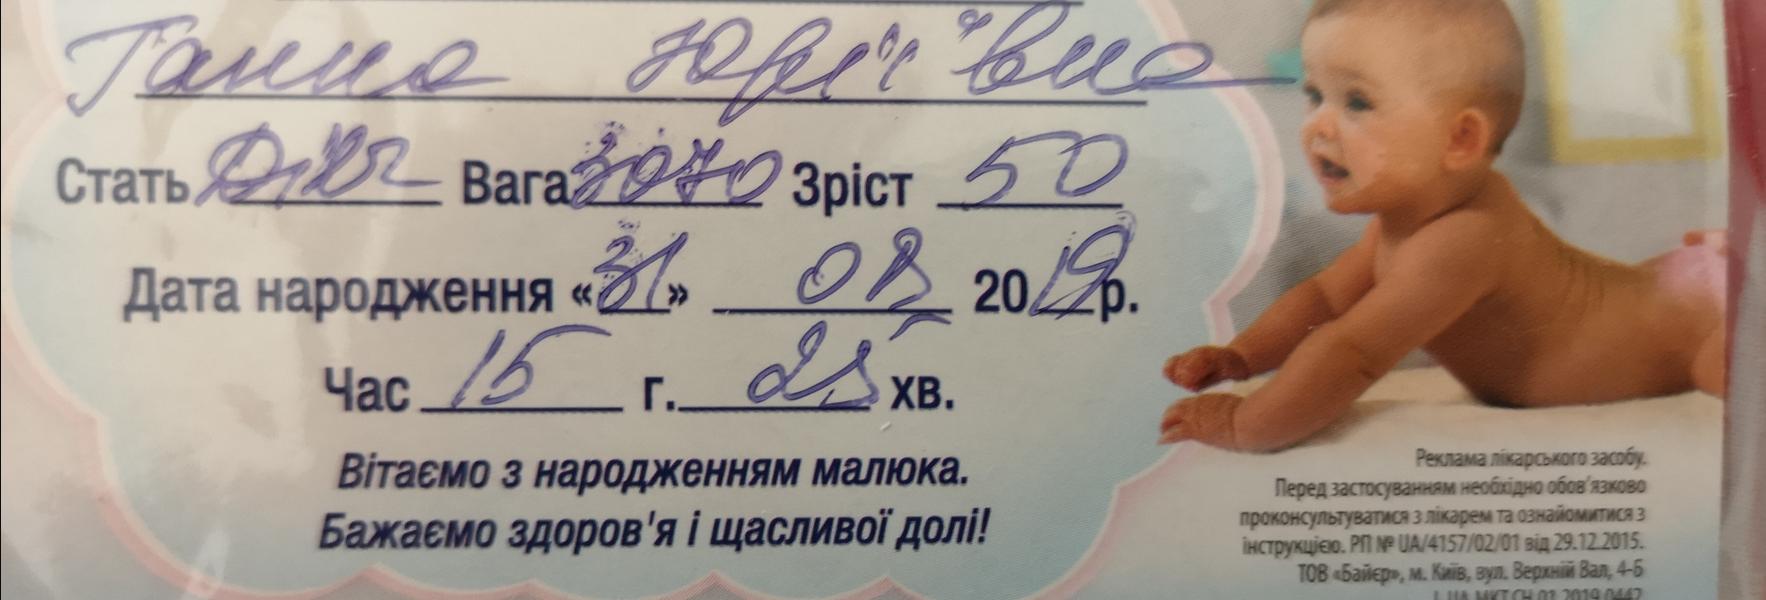 Ганна Юріївна
Стать Дівч Вага 3070 Зріст 50
Дата народження «31» 08 2019р.
Час 15 г. 25 хв.
Вітаємо з народженням малюка.
Бажаємо здоров'я і щасливої долі!
Реклама лікарського засобу.
Перед застосуванням необхідно обов'язково
проконсультуватися з лікарем та ознайомитися з
інструкцією. РП № UA/4157/02/01 від 29.12.2015.
ТОВ «Байєр», м. Київ, вул. Верхній Вал, 4-б